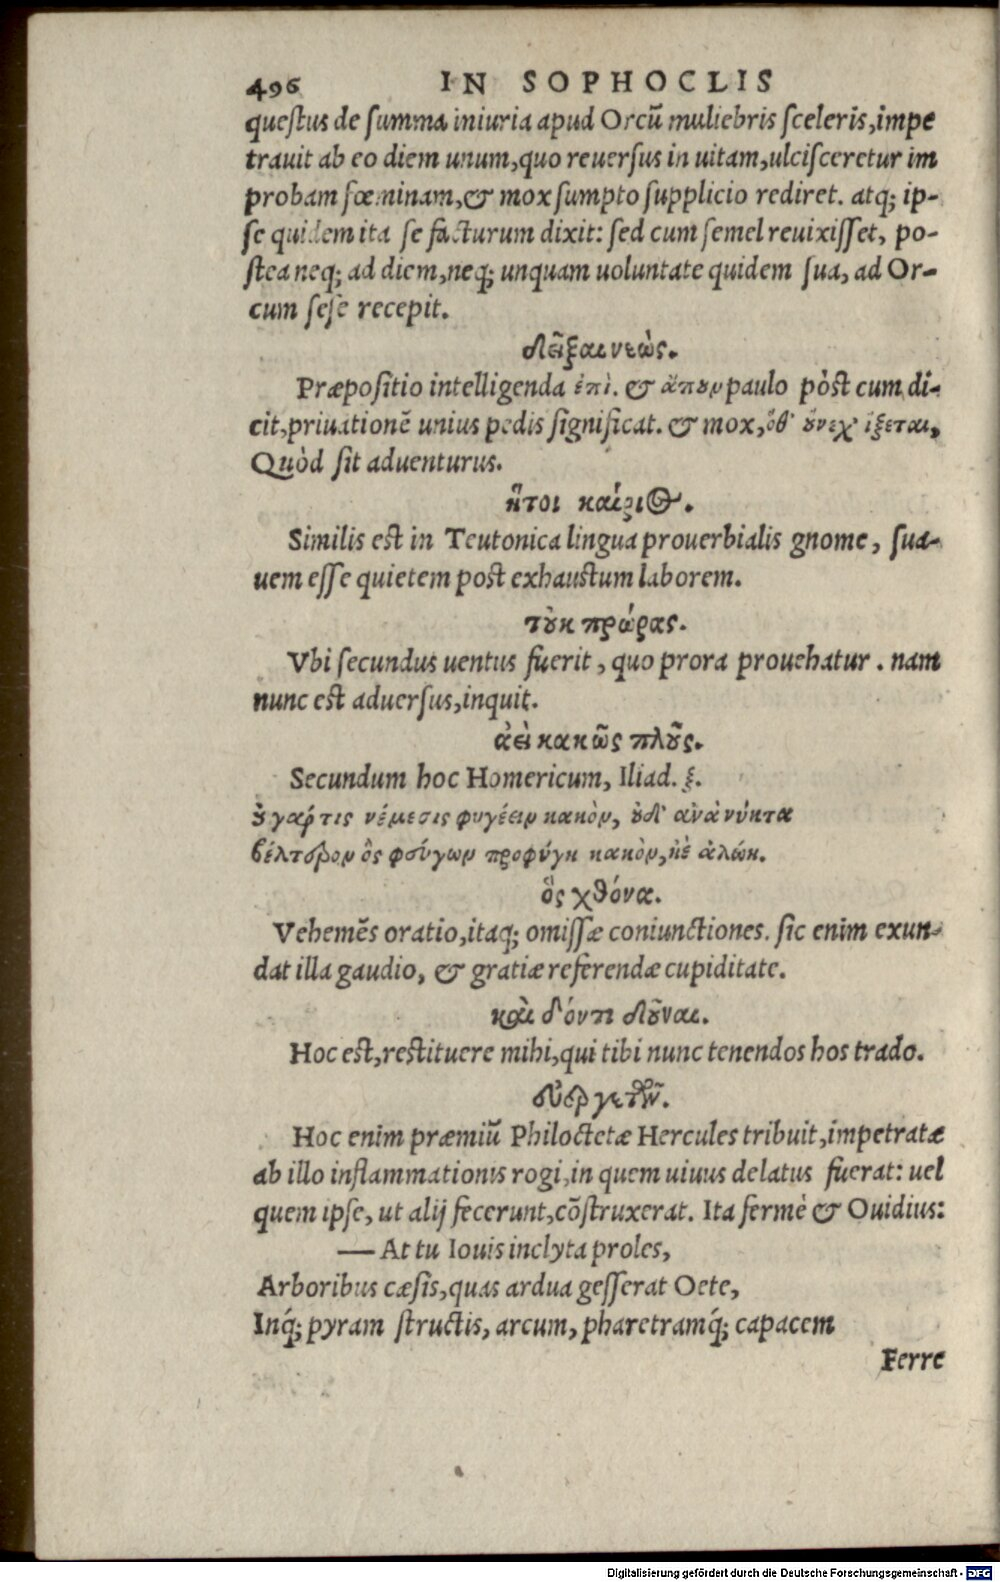 496 IN SOPHOCLIS
questus de summa iniuria apud Orcū muliebris sceleris, impe
trauit ab eo diem unum, quo reuersus in uitam, ulcisceretur im
probam fœminam, & mox sumpto supplicio rediret. atq; ip-
se quidem ita se facturum dixit: sed cum semel reuixisset, po-
stea neq; ad diem, neq; unquam uoluntate quidem sua, ad Or-
cum sese recepit.
δεῖξαι νεὼς.
Præpositio intelligenda ἐπὶ. & ἄπουν paulo pòst cum di-
cit, priuationē unius pedis significat. & mox, ὅθ' οὕνεχ' ἵξεται,
Quòd sit aduenturus.
ἤτοι καίριος.
Similis est in Teutonica lingua prouerbialis gnome, sua-
uem esse quietem post exhaustum laborem.
τοὐκ πρώρας.
Vbi secundus uentus fuerit, quo prora prouehatur. nam
nunc est aduersus, inquit.
ἀεὶ κακῶς πλοῦς.
Secundum hoc Homericum, Iliad. ξ.
οὐ γάρ τις νέμεσις φυγέειν κακὸν, οὐδ' ἀνὰ νύκτα
βέλτερον ὃς φεύγων προφύγῃ κακὸν, ἠὲ ἁλώῃ.
ὃς χθόνα.
Vehemēs oratio, itaq; omissæ coniunctiones. sic enim exun-
dat illa gaudio, & gratiæ referendæ cupiditate.
καὶ δόντι δοῦναι.
Hoc est, restituere mihi, qui tibi nunc tenendos hos trado.
εὐεργετῶν.
Hoc enim præmiū Philoctetæ Hercules tribuit, impetratæ
ab illo inflammationis rogi, in quem uiuus delatus fuerat: uel
quem ipse, ut alij fecerunt, cōstruxerat. Ita fermè & Ouidius:
— At tu Iouis inclyta proles,
Arboribus cæsis, quas ardua gesserat Oete,
Inq́; pyram structis, arcum, pharetramq́; capacem
Ferre
Digitalisierung gefördert durch die Deutsche Forschungsgemeinschaft - DFG